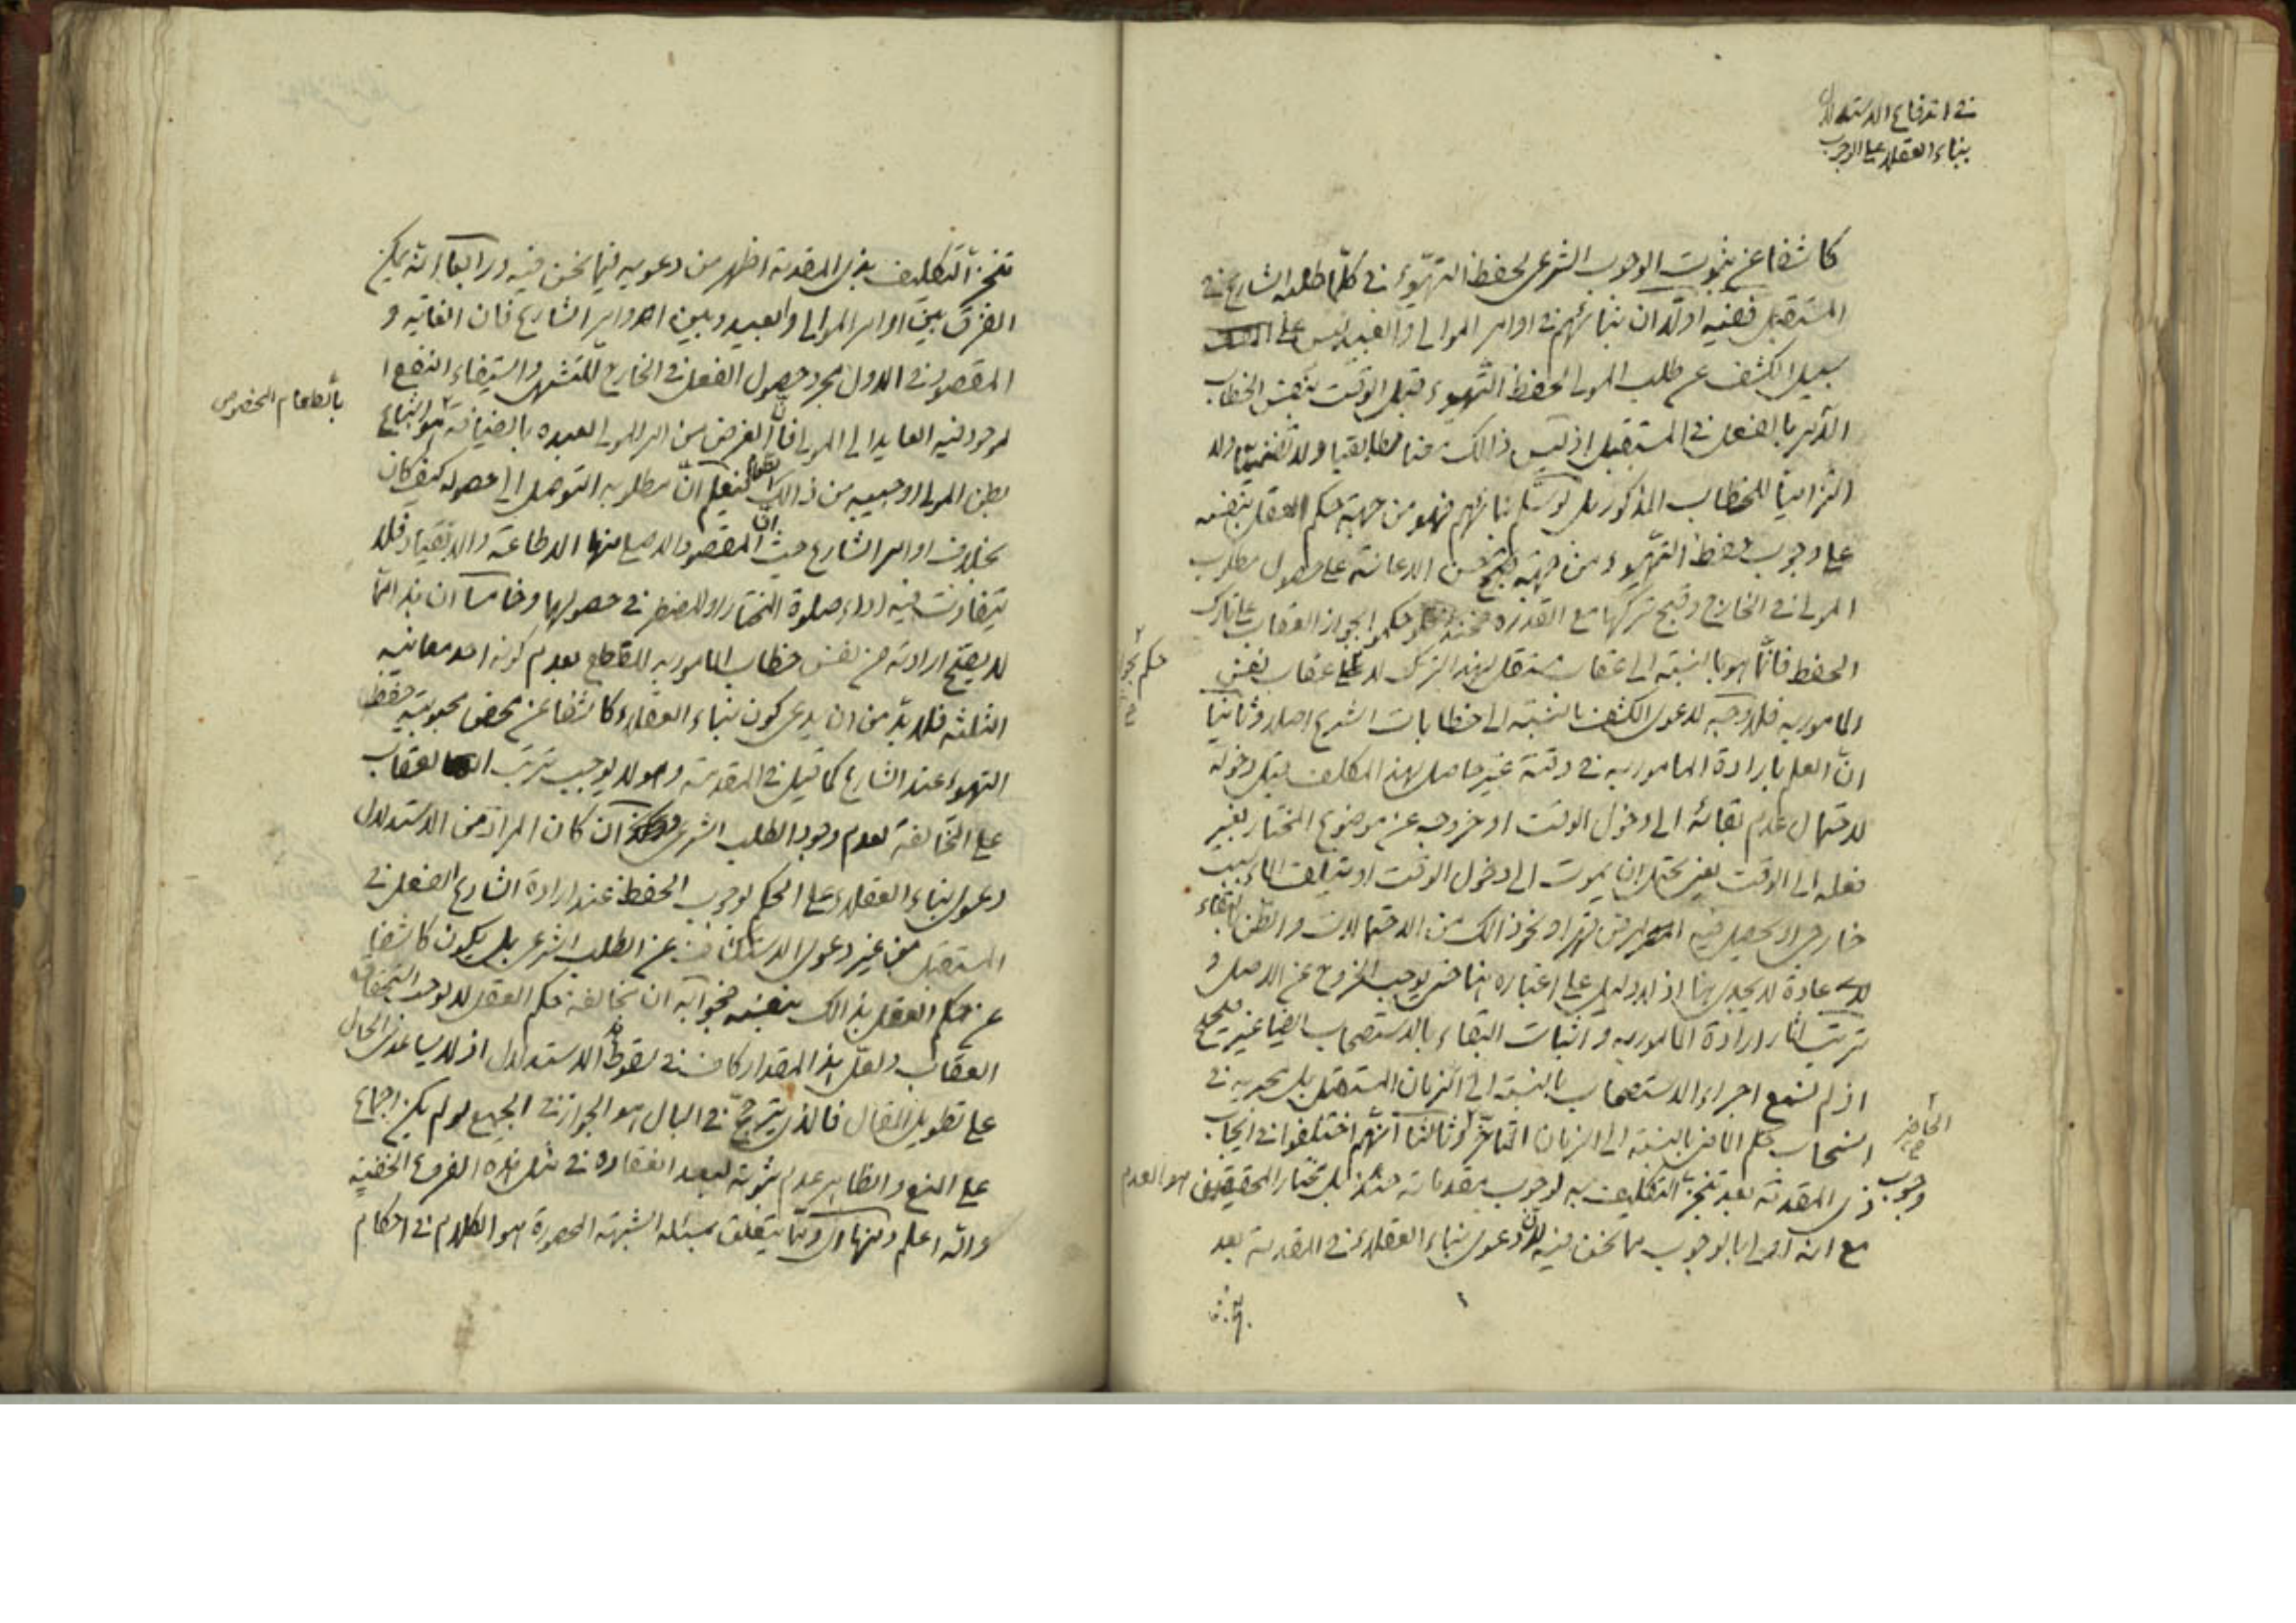 في اندفاع الاستدلال
بناء العقلاء على الوجوب
كاشفا عن ثبوت الوجوب الشرعي لحفظ التهيؤ في كلما طلبه الشارع في
المستقبل ففيه اولا ان بنائهم في اوامر الموالي والعبيد ليس على
سبيل الكشف عن طلب المولى لحفظ التهيوء قبل الوقت بنفس الخطاب
الآمر بالفعل في المستقبل اذ ليس ذالك معنا مطابقيا ولا تضمنيا ولا
التزاميا للخطاب المذكور بل لو سلم بنائهم فهو من جهة حكم العقل بنفسه
على وجوب حفظ التهيوء من جهة حسن الاعانة على حصول مطلوب
المولى في الخارج وقبح تركها مع القدرة حكموا بجواز العقاب على تارك
الحفظ فانما هو بالنسبة الى عقاب مستقل لهذا الترك لا على عقاب نفس
حكم بجواز
المامور به فلا وجه لدعوى الكشف بالنسبة الى خطابات الشرع اصلا وثانيا
ان العلم بارادة المامور به في وقته غير حاصل لهذا المكلف قبل دخوله
لاحتمال عدم بقائه الى دخول الوقت او خروجه عن موضوع المختار بغير
فعله الى الوقت يعني يحتمل ان يموت الى دخول الوقت او يتلف الماء بسبب
خارجي او يحصل فيه المرض قهرا ونحو ذالك من الاحتمالات والظن بالبقاء
عادة لا يجدي هنا اذ لا دليل على اعتباره هنا حتى يوجب الخروج عن الاصل و
ترتيب اثار ارادة المامور به واثبات البقاء بالاستصحاب ايضا غير صحيح
اذ لم نسمع اجراء الاستصحاب بالنسبة الى الزمان المستقبل بل نجريه في
الحاضر
انسحاب حكم الماضي بالنسبة الى الزمان المتاخر وثالثا انهم اختلفوا في ايجاب
وجوب ذي المقدمة بعد تنجز التكليف به لوجوب مقدماته حتى بل مختار المحققين هو العدم
مع انه اولى بالوجوب مما نحن فيه لان دعوى بناء العقلاء في المقدمة بعد
تنجز التكليف بذي المقدمة اظهر من دعويه فيما نحن فيه ورابعا انه يمكن
الفرق بين اوامر الموالي والعبيد وبين اوامر الشارع فان الغاية و
المقصود في الاول مجرد حصول الفعل في الخارج للتشهي واستيفاء النفع
بالطعام المخصوص
لوجود فيه العايد الى المولى فان الغرض من امر المولى لعبده بالضيافة هو اشباع
بطن المولى او حبيبه من ذالك الطعام فيعلم ان مطلوبه التوصل الى حصوله كيف كان
بخلاف اوامر الشارع حيث ان المقصود الاصلي منها الاطاعة والانقياد فلا
يتفاوت فيه اداء صلوة المختار او المضطر في حصولها وخامسا ان هذا مما
لا يصح ارادته من نفس خطاب المامور به للقطع بعدم كونه احد معانيه
الثلثه فلا بد من ان يدعى كون بناء العقلاء كاشفا عن محض محبوبية حفظ
التهيوء عند الشارع كما قيل في المقدمة وهو لا يوجب ترتب العقاب
على المخالفة لعدم وجود الطلب الشرعي ان كان المراد من الاستدلال
دعوى بناء العقلاء على الحكم لوجوب الحفظ عند ارادة الشارع الفعل في
المستقبل من غير دعوى الاستكشاف عن الطلب الشرعي بل يكون كاشفا
عن حكم العقل بذالك بنفسه فجوابه ان مخالفة حكم العقل لا يوجب استحقاق
العقاب ولعل هذا المقدار كاف في سقوط الاستدلال اذ لا يساعدني الحال
على تطويل المقال فالذي يترجح في البال هو الجواز في الجميع لو لم يكن اجماع
على المنع والظاهر عدم ثبوته لبعد انعقاده في مثل هذه الفروع الخفية
والله اعلم ومنها اي ومما يتعلق بمسئلة الشبهة المحصورة هو الكلام في احكام